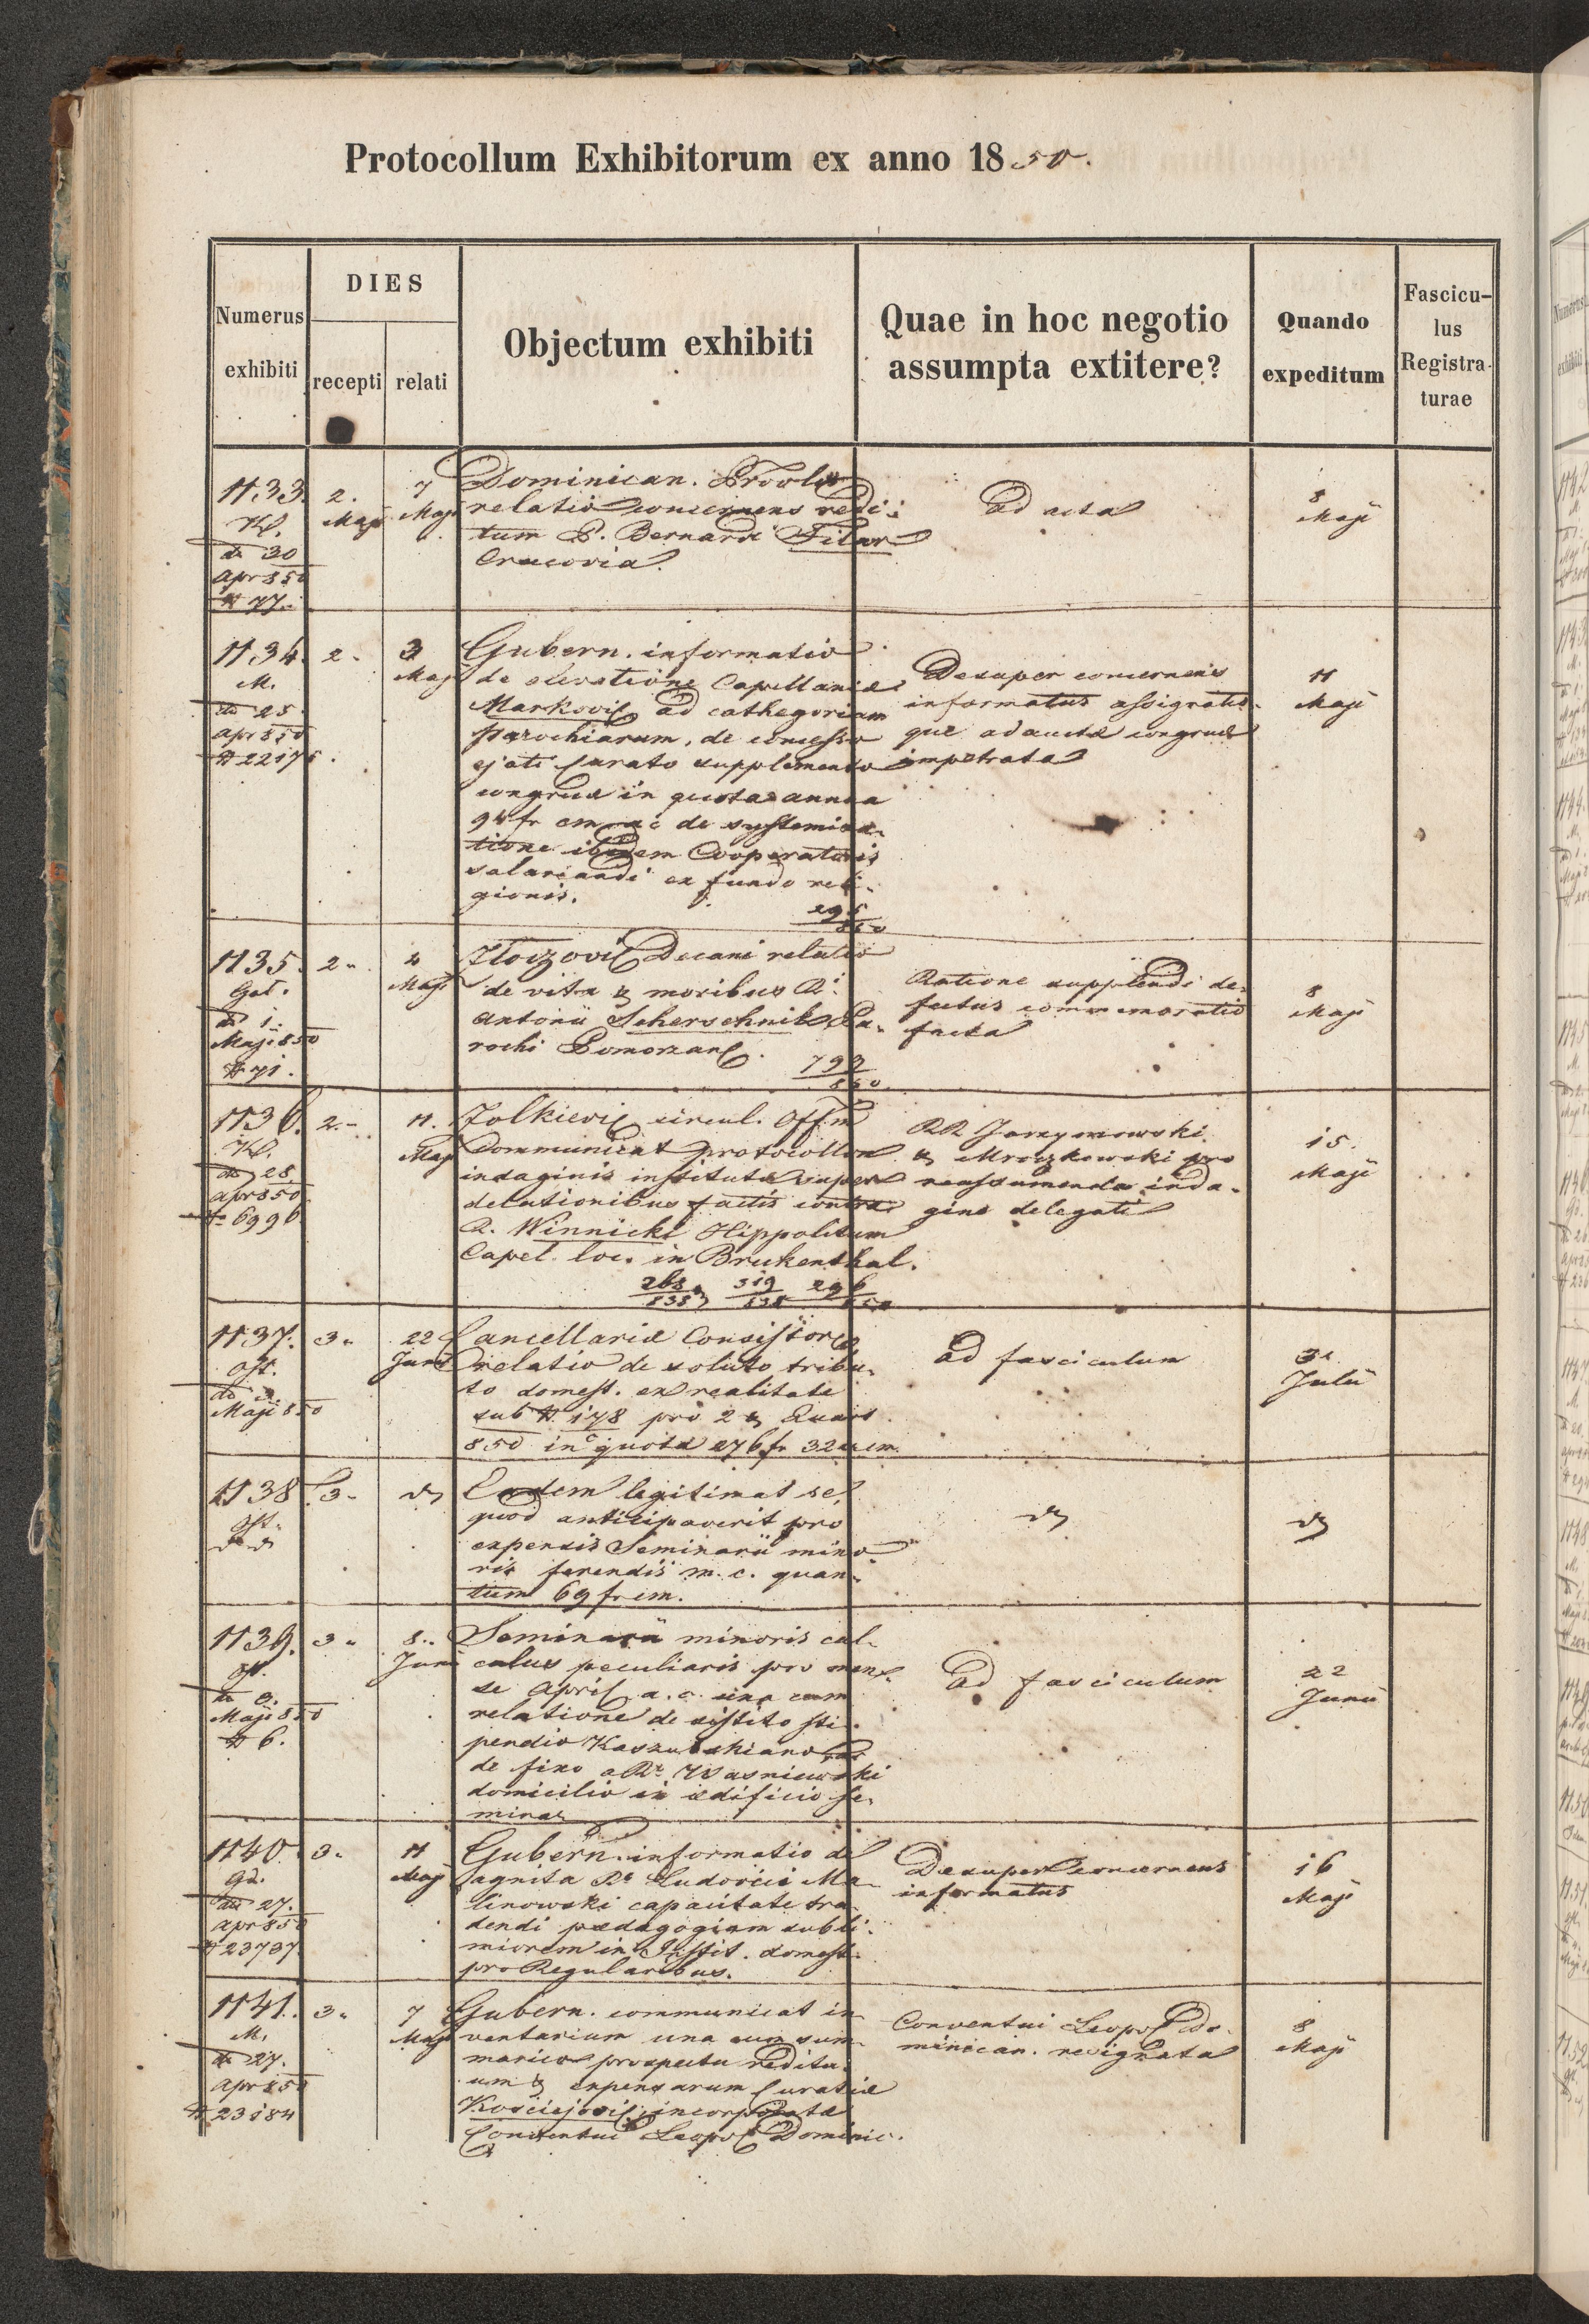 Protocollum Exhibitorum ex anno 1850.
Numerus exhibiti
DIES
recepti
relati
Objectum exhibiti
Quae in hoc negotio assumpta extitere?
Quando expeditum
Fascicu-
lus
Registra-
turae
1133.
de 30
Apr 850
# 77.
2.
Maji
7
Maji
Dominican.
relatio concernens redi-
tum P. Bernardi Filar
Cracovia.
ad acta
8
Maji
1134.
M.
de 25
Apr 850
# 22175.
2.
3
Maji
Gubern. informatio
de elevatione Capellaniæ
Markov ad cathegoriam
parochiarum, de concesso
ejati Curato supplemento
congruæ in quota annua
94 fr cm ac de systemisa-
tione ibidem Cooperatoris
salariandi ex fundo reli-
gionis.
296
850
Desuper concernens
informatus assignatio-
que adauctæ congruæ
impetrata
11
Maji
1135.
Gal.
de 1.
Maji 850
# 71.
2.
4
Maji
Złoczov Decani relatio
de vita & moribus R.
Antonii Scherschnik Pa-
rochi Pomorzan.
793
850
Ratione supplendi de-
fectus commemoratio
facta
8
Maji
1136.
de 28
Apr 850
# 6996
2.
11.
Maji
Zolkiev circul. Off.m
Communicat protocollon
indaginis institutæ super
delationibus factis contra
R. Winnicki Hippolitum
Capel. loc. in Bruckenthal.
268 319 296
838 838 850
RR Jarzymowski
& Mroczkowski pro
reassumenda inda-
gine delegati
15.
Maji
1137.
Ost.
de 3
Maji 850
3.
22
Junii
Cancellariæ Consistor
relatio de soluto tribu-
to domest. ex realitate
sub # 178 pro 2 & Quart
850 in quota 276 fr 32 x cm.
ad fasciculum
3
Julii
1138.
Ost.
3.
do
Eadem legitimat se,
quod anticipaverit pro
expensis Seminarii mino-
ris ferendis m. c. quan-
tum 69 fr cm.
do
do
1139.
Ost.
de 3.
Maji 850
# 6.
3.
8.
Junii
Seminarii minoris cal-
culus peculiaris pro men-
se April a. c. una cum
relatione de sistito sti-
pendio
de fixo a R. Wasniewski
domicilio in ædificio se-
minar
ad fasciculum
22
Junii
1140.
Gd.
de 27.
Apr 850
# 23737
3.
11
Maji
Gubern. informatio de
agnita R. Ludovici Ma-
linowski capacitate tra-
dendi pædagogiam subli-
miorem in Instit. domest.
pro Regularibus.
Desuper concernens
informatus
16
Maji
1141.
M.
de 27.
Apr 850
# 23184
3.
7
Maji
Gubern. communicat in-
ventarium una cum sum-
mario prospectu reditu-
um & expensarum Curatiæ
Kościejov incorporatæ
Conventui Leopol Dominic.
Conventui Leopol Do-
minican. resignata
8
Maji